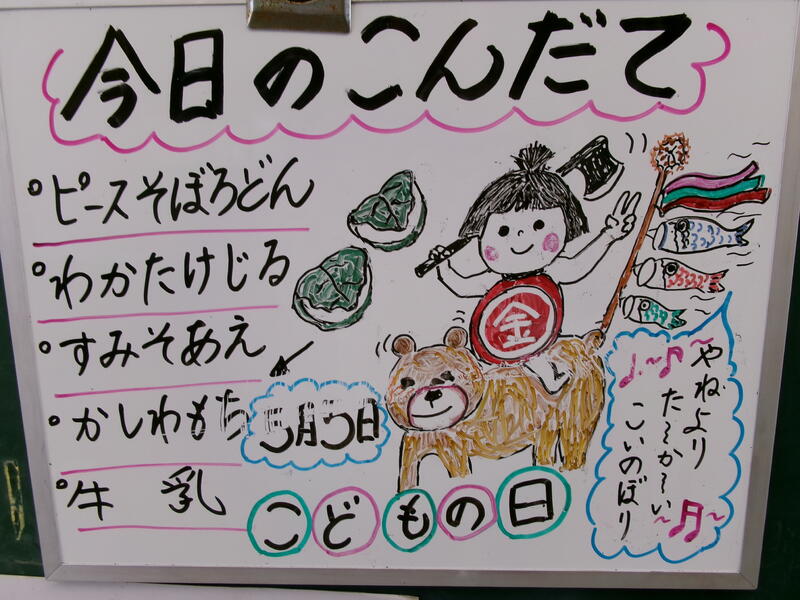 今日のこんだて
ピースそぼろどん
わかたけじる
すみそあえ
かしわもち
牛乳
金
5月5日
こどもの日
やねより
た～か～い
こいのぼり